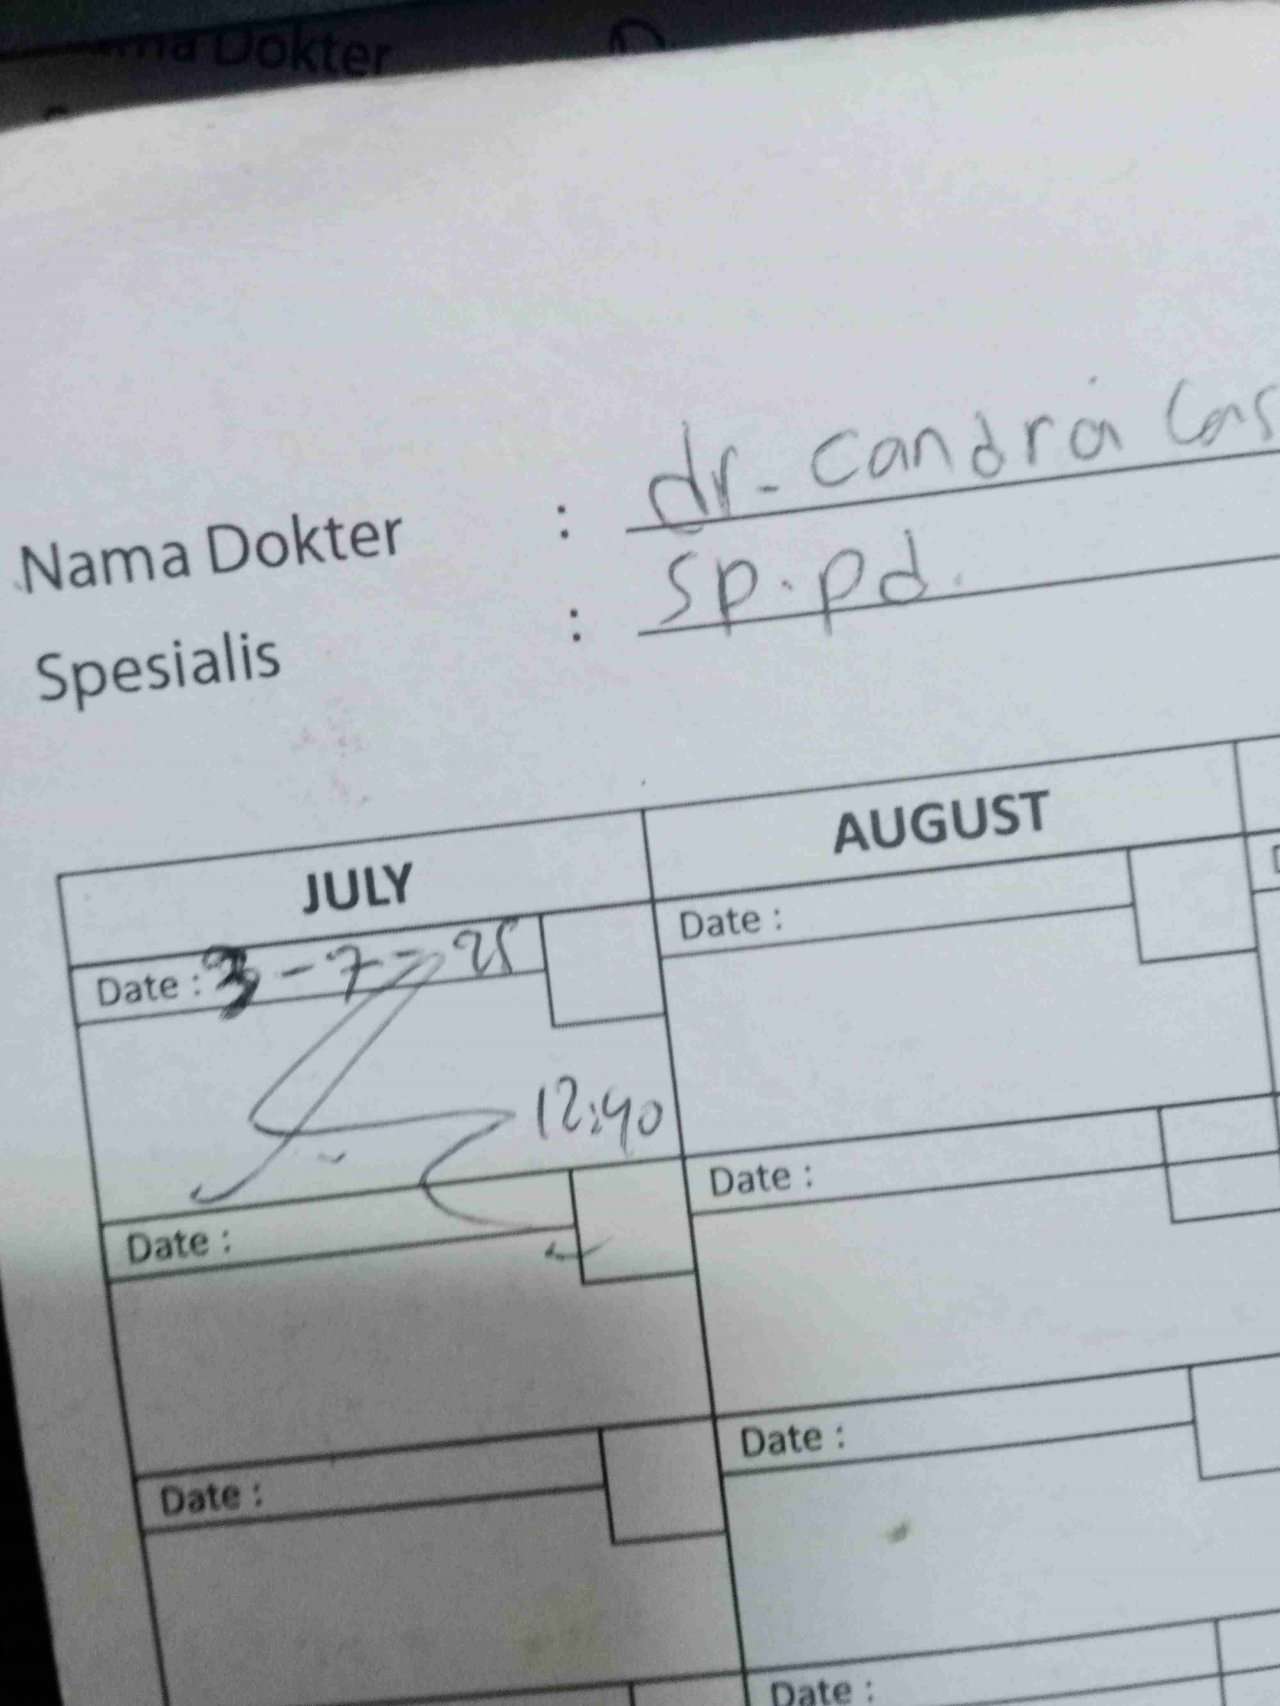 Nama Dokter
Nama Dokter : dr. Candra
Spesialis : Sp.pd.
JULY
AUGUST
Date : 3-7-25
Date :
12:40
Date :
Date :
Date :
Date :
Date :